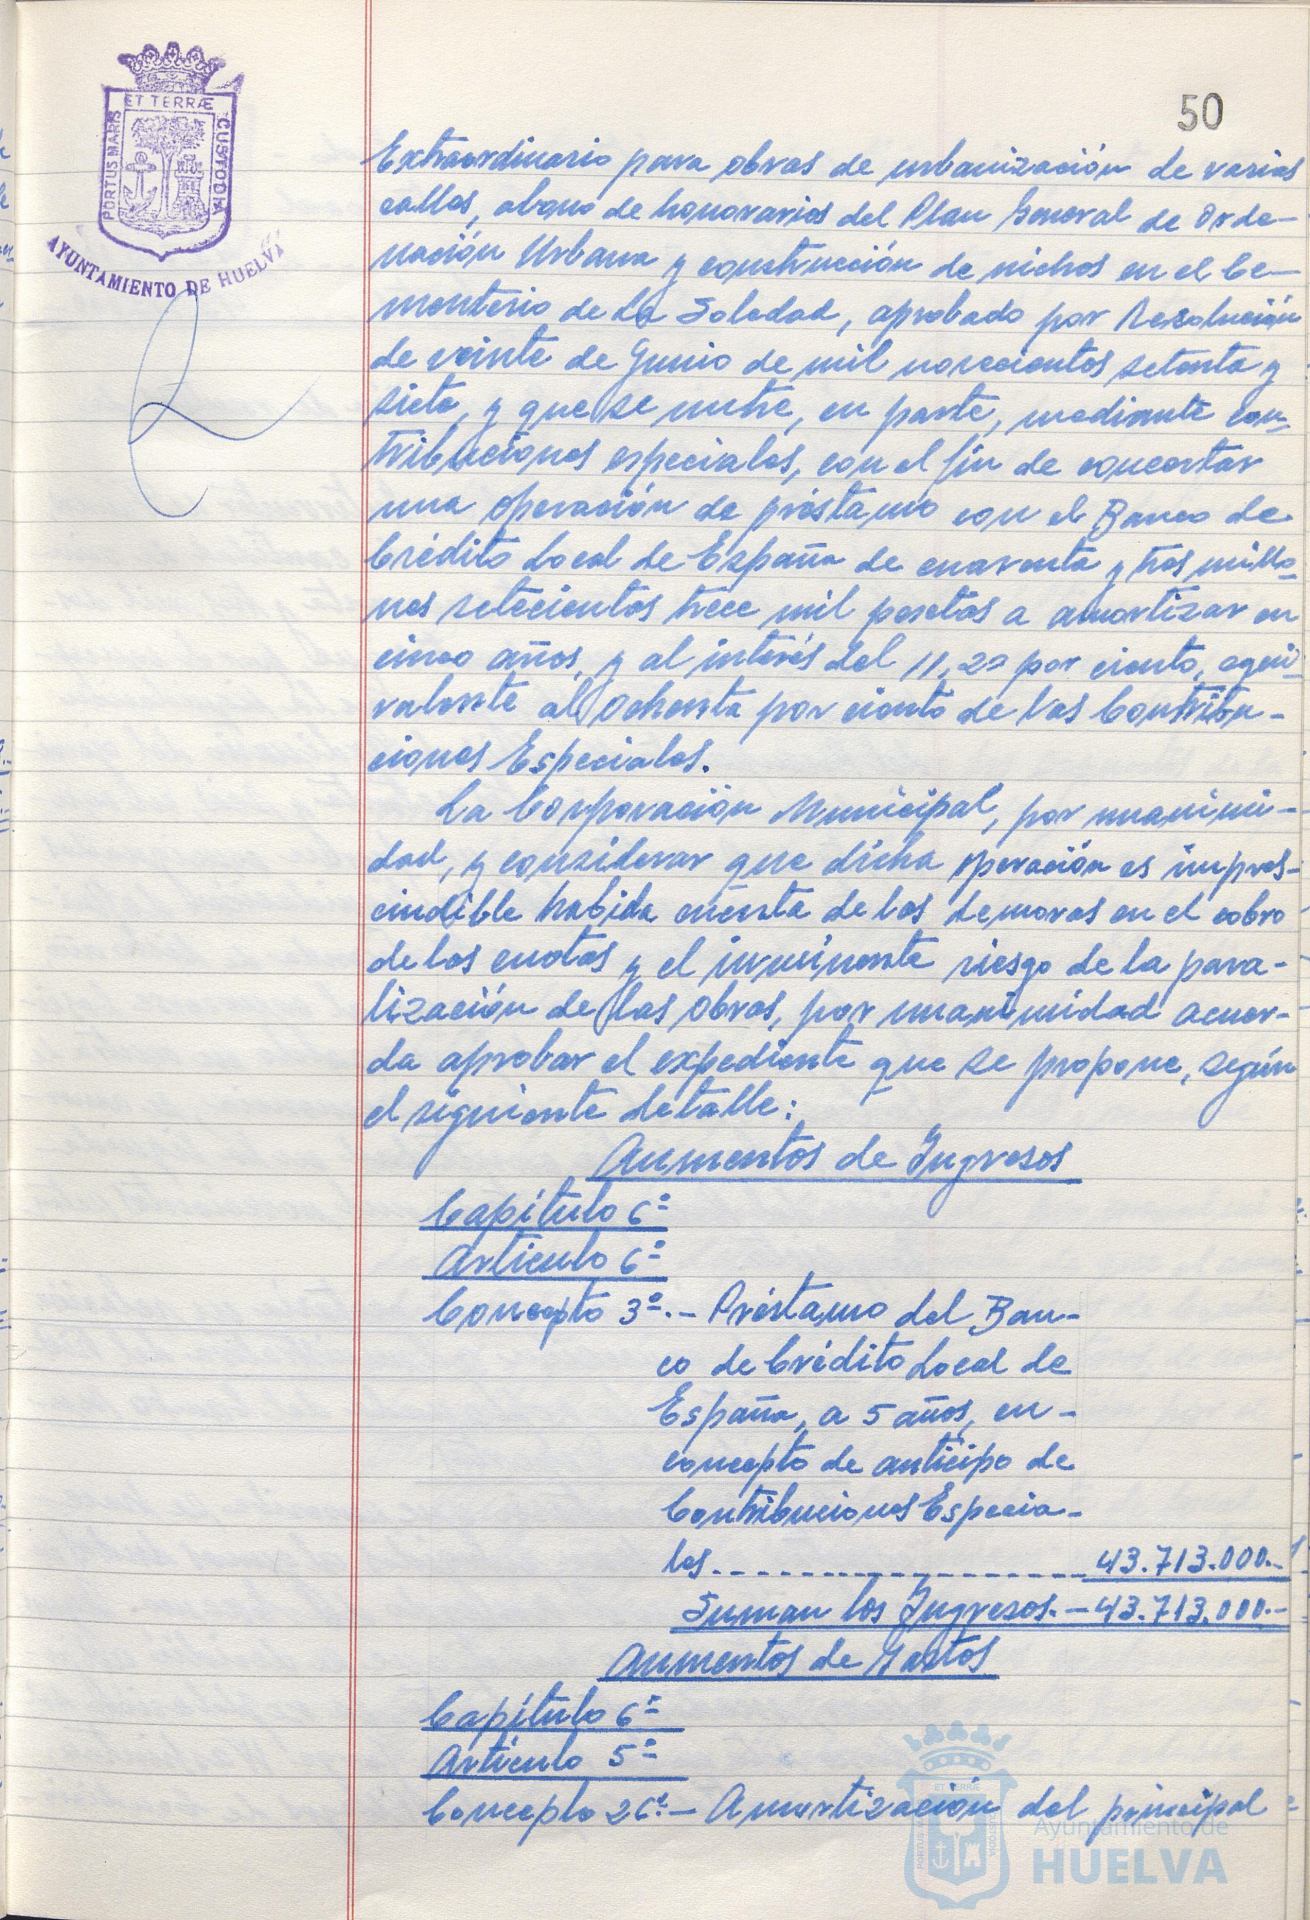 50
ET TERRÆ
PORTUS MARIS
CUSTODIA
AYUNTAMIENTO DE HUELVA
Extraordinario para obras de urbanización de varias
calles, abono de honorarios del Plan General de Orde-
nación Urbana y construcción de nichos en el Ce-
menterio de La Soledad, aprobado por Resolución
de veinte de Junio de mil novecientos setenta y
siete, y que se nutre, en parte, mediante con-
tribuciones especiales, con el fin de concertar
una operación de préstamo con el Banco de
Crédito Local de España de cuarenta y tres millo-
nes setecientos trece mil pesetas a amortizar en
cinco años, y al interés del 11,20 por ciento, equi-
valente al ochenta por ciento de las Contribu-
ciones Especiales.
La Corporación Municipal, por unanimi-
dad, y considerar que dicha operación es impres-
cindible habida cuenta de las demoras en el cobro
de las cuotas y el inminente riesgo de la para-
lización de las obras, por unanimidad acuer-
da aprobar el expediente que se propone, según
el siguiente detalle:
Aumentos de Ingresos
Capítulo 6º
Artículo 6º
Concepto 3º.- Préstamo del Ban-
co de Crédito Local de
España, a 5 años, en-
concepto de anticipo de
Contribuciones Especia-
les.----------------43.713.000.-
Suman los Ingresos.-43.713.000.-
Aumentos de Gastos
Capítulo 6º
Artículo 5º
Concepto 26º.- Amortización del principal
ET TERRÆ
Ayuntamiento de
HUELVA